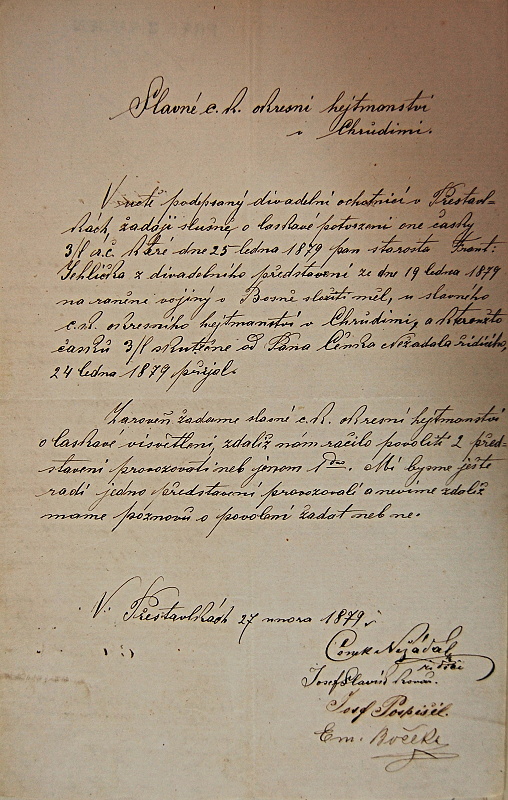 Slavné c. k. okresní hejtmanství
v Chrudimi.
V uctě podepsaný divadelní ochotníci v Přestavl-
kách, žádají slušně, o laskavé potvrzení one častky
3 fl r.č. které dne 25 ledna 1879 pan starosta Frant:
Jehlička z divadelního představení ze dne 19 ledna 1879
na raněné vojíny v Bosně složiti měl, u slavného
c. k. okresního hejtmanství v Chrudimi, a
častku 3 fl skutečne od Pana Čenka Nežadala řidícího,
24 ledna 1879 přijal.
Zaroveň žadame slavné c. k. okresní hejtmanství
o laskavé visvětlení, zdaliž nám račilo povoliti 2 před-
stavení provozovati neb jenom 1. Mi bysme ješte
radi jedno představení provozovali a nevime zdaliž
mame poznovu o povolení žadat neb ne.
V. Přestavlkách 27 unora 1879
Čenek Nežádal
řidící
Josef Slavík kovář.
Josef Pospíšil.
Em. Boček